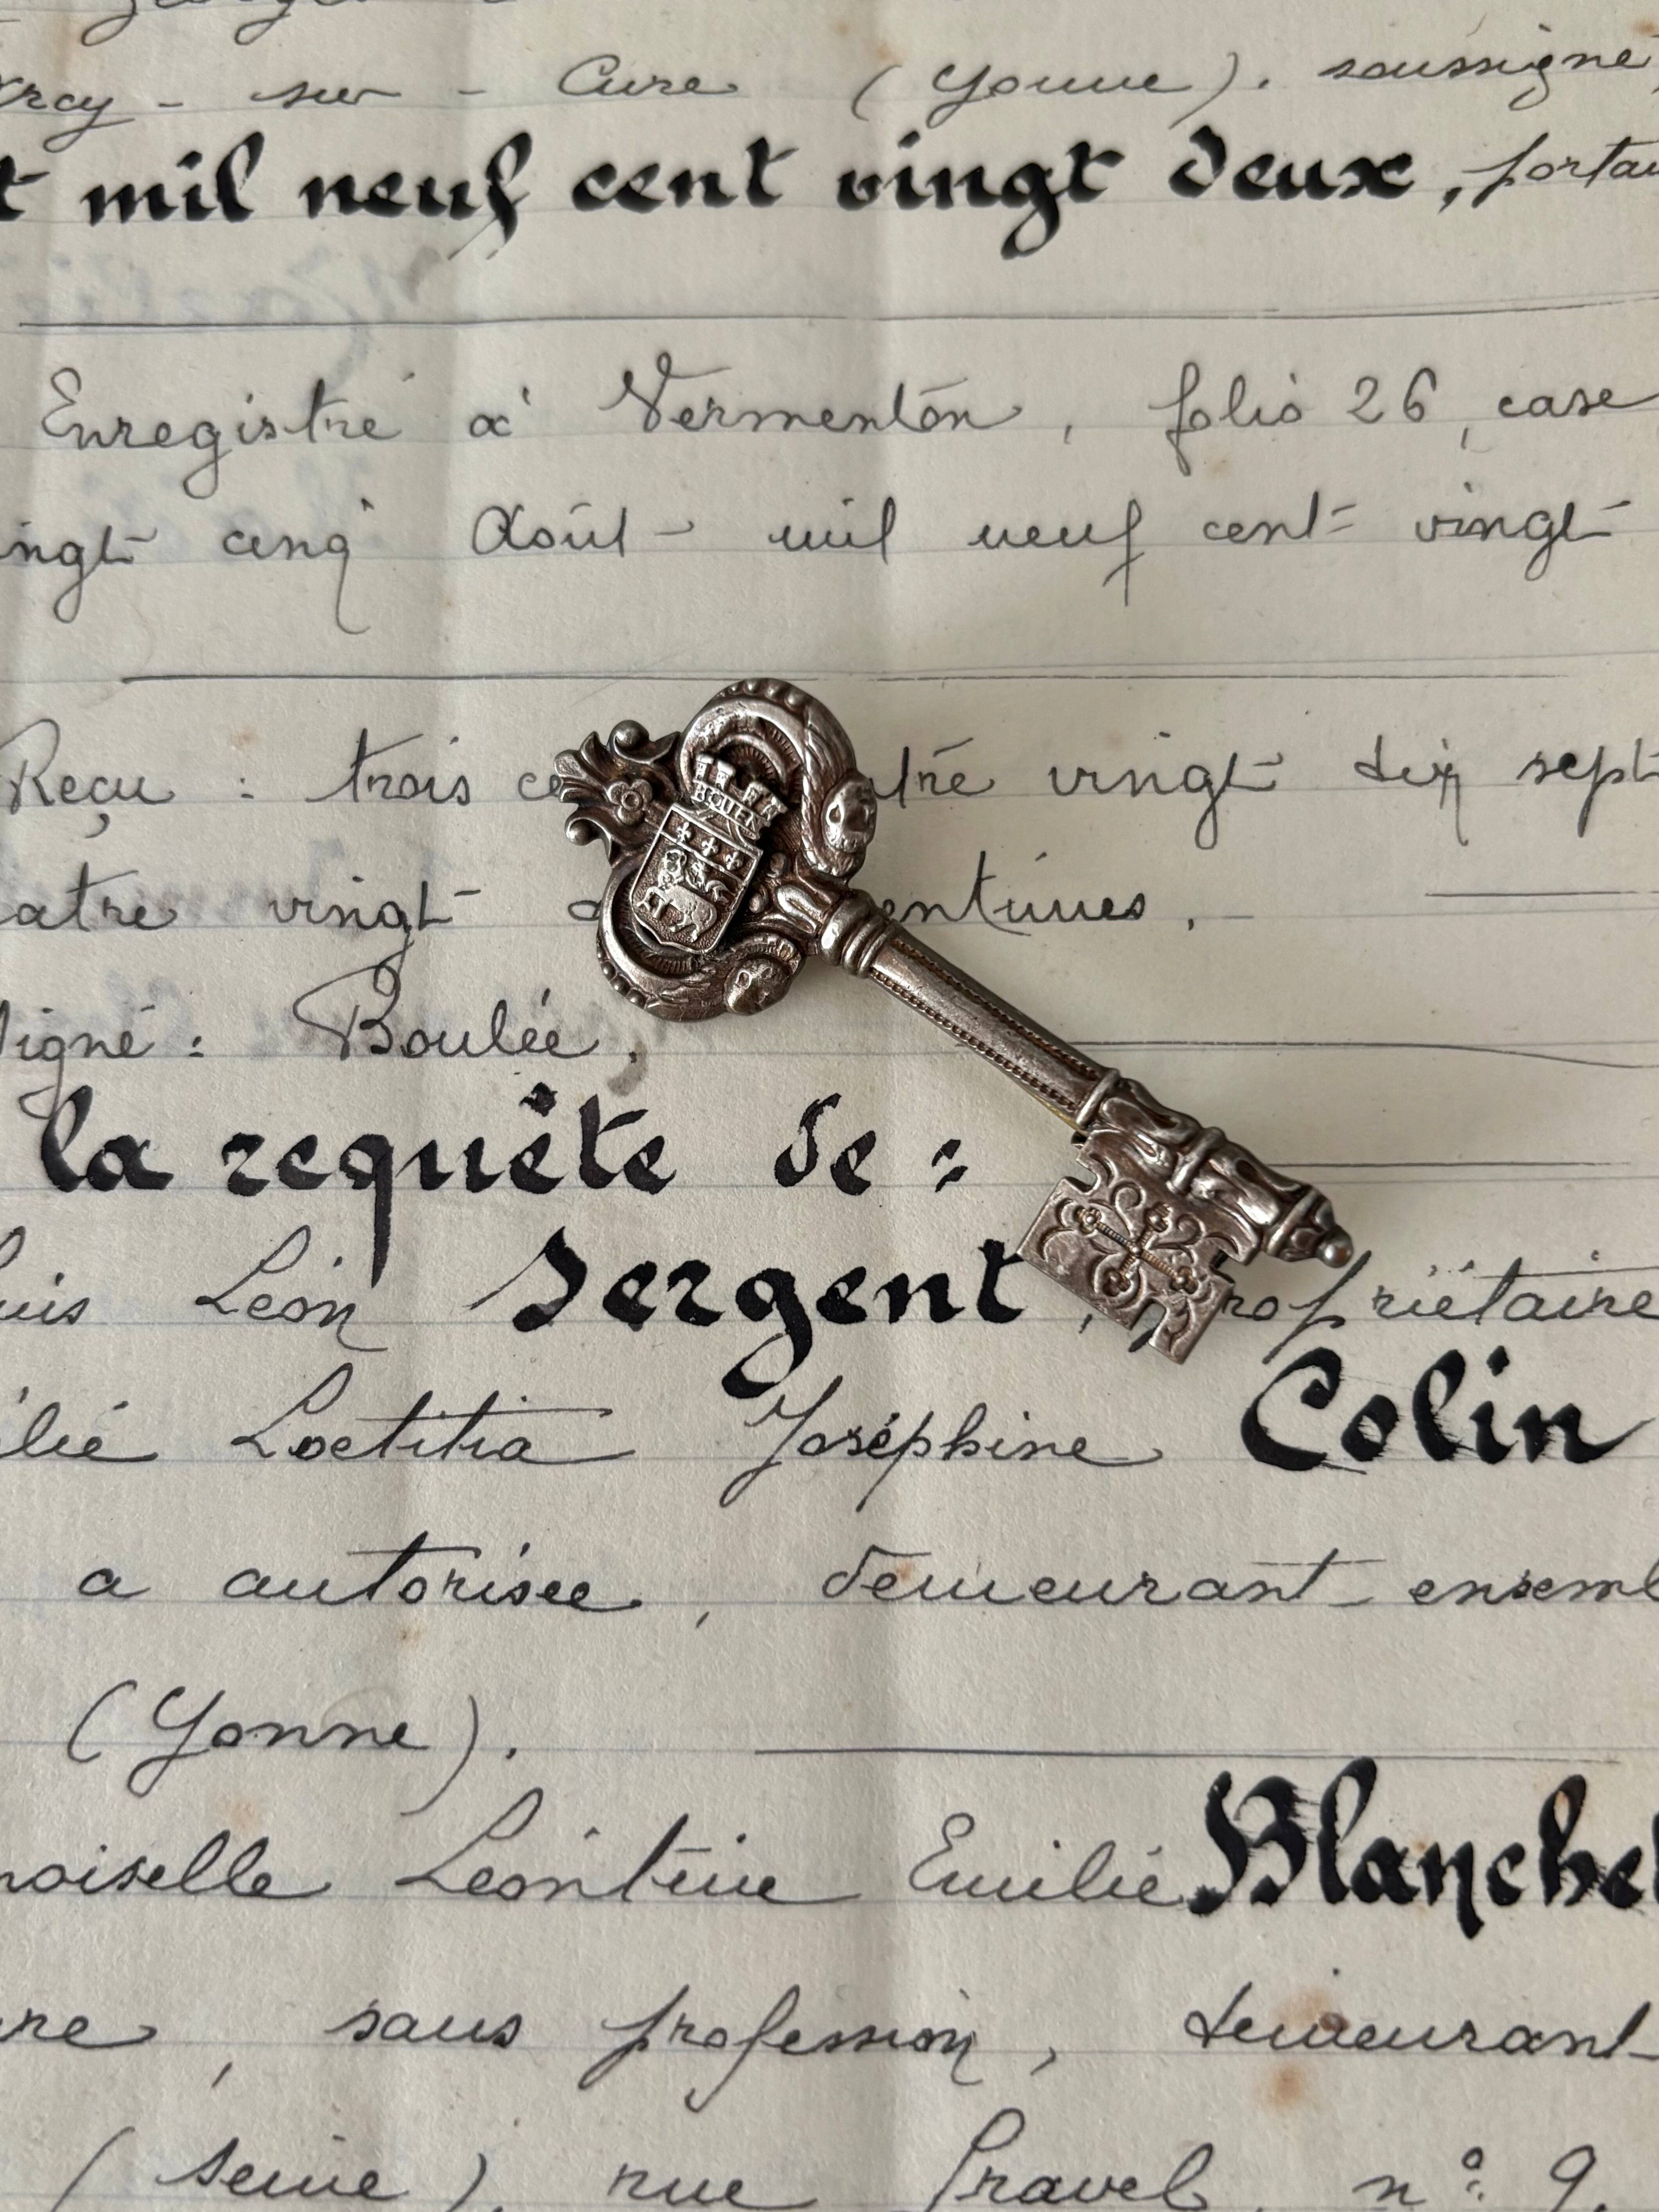 - sur - Cure (Yonne). soussigné,
t mil neuf cent vingt deux, portan
Enregistré à Vermenton, folio 26, case
ingt cinq Août mil neuf cent vingt
Reçu : trois ce atre vingt dix sept
atre vingt centimes.
signé : Boulée.
ROUEN
la requête de :
uis Léon Sergent, propriétaire
élie Loetitia Joséphine Colin
a autorisée, demeurant ensembl
(Yonne).
moiselle Léontine Emilie Blanche
re, sans profession, demeurant
(Seine), rue n° 9.